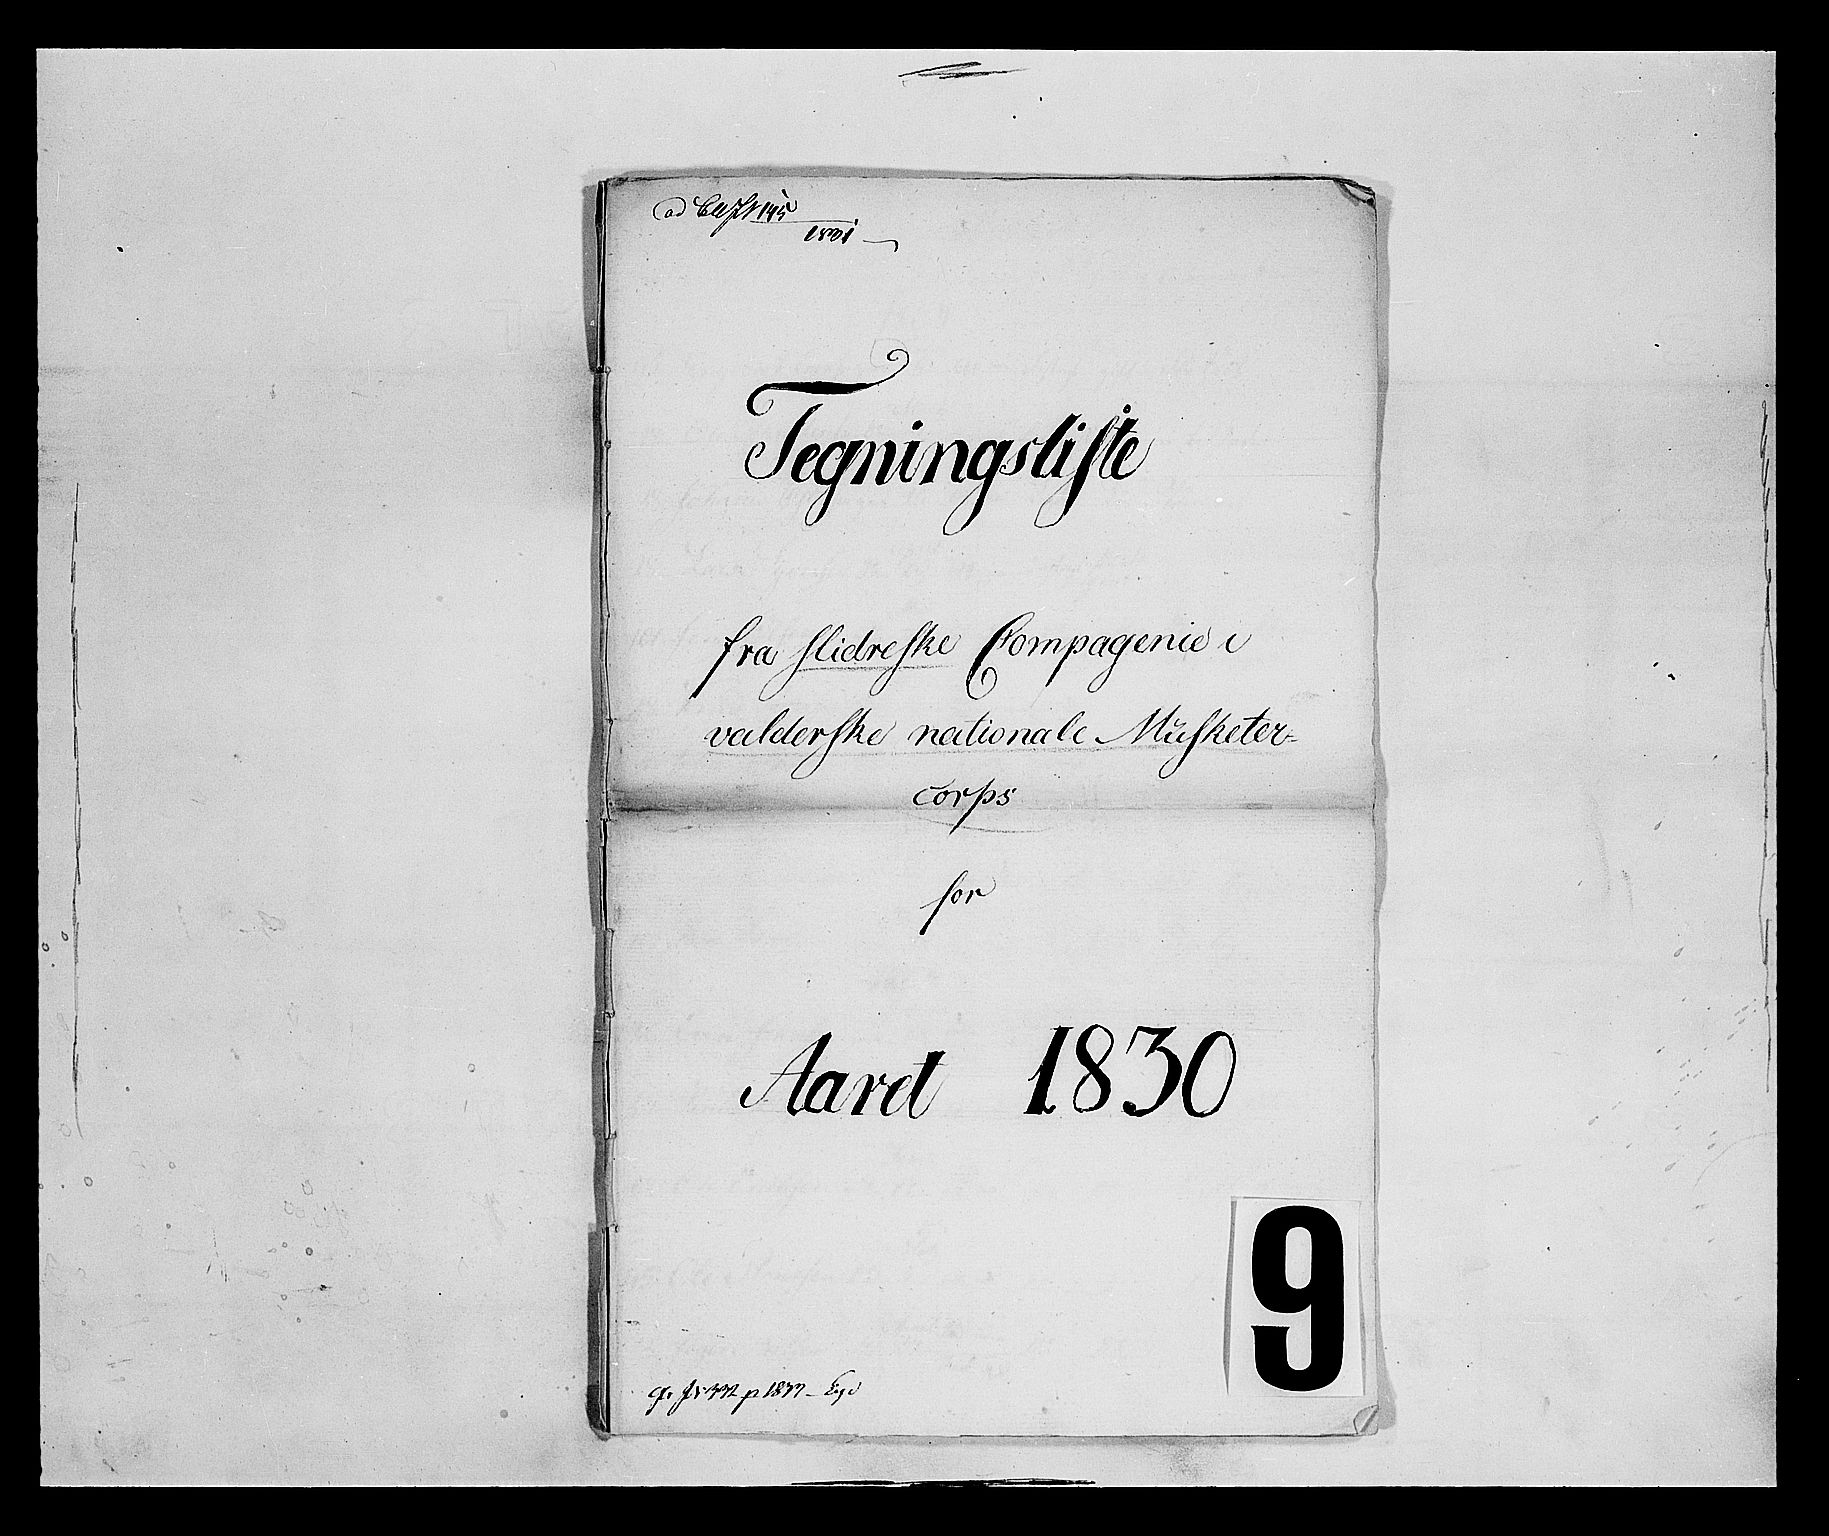 ad
1831
Tegningsliste
fra slidreske Compagenie i
valderske nationale Musketer-
corps
for
Aaret 1830
9